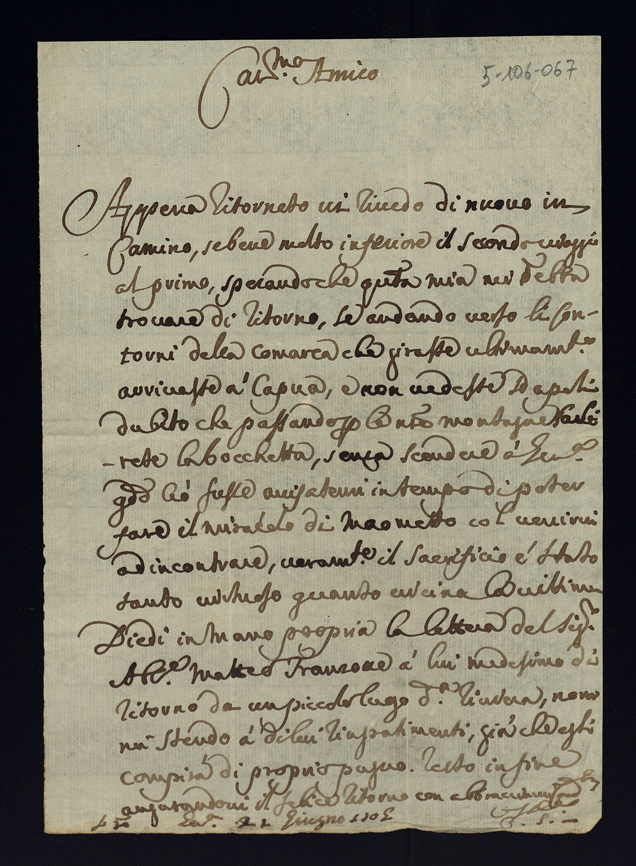 Car.mo Amico
5-106-067
Appena ritornato vi rivedo di nuovo in
Camino, sebene molto inferiore il secondo viaggio
al primo, sperando che questa mia vi debba
trovare di ritorno, se andando verso li Con-
torni della comarca che giraste ultimamte.
arrivaste a' Capua, e non vedeste Napoli
dubito che passando per le nostre montagne
-rete la bocchetta, senza scendere á
ció fusse avisatemi in tempo di poter
fare il miracolo di Maometto col venirvi
ad incontrare, veramte. il sacrificio é stato
tanto virtuoso quanto vicina la vittima
Diedi in mano propria la lettera del Sigr.
Abe. Matteo Franzone á lui medesimo di
ritorno da un piccolo luogo d.a riviera, non
mi stendo á di lui ringratimenti, giá che egli
compirá di proprio pugno. resto in fine
augurandovi il felice ritorno con abbracciarvi
Giugno